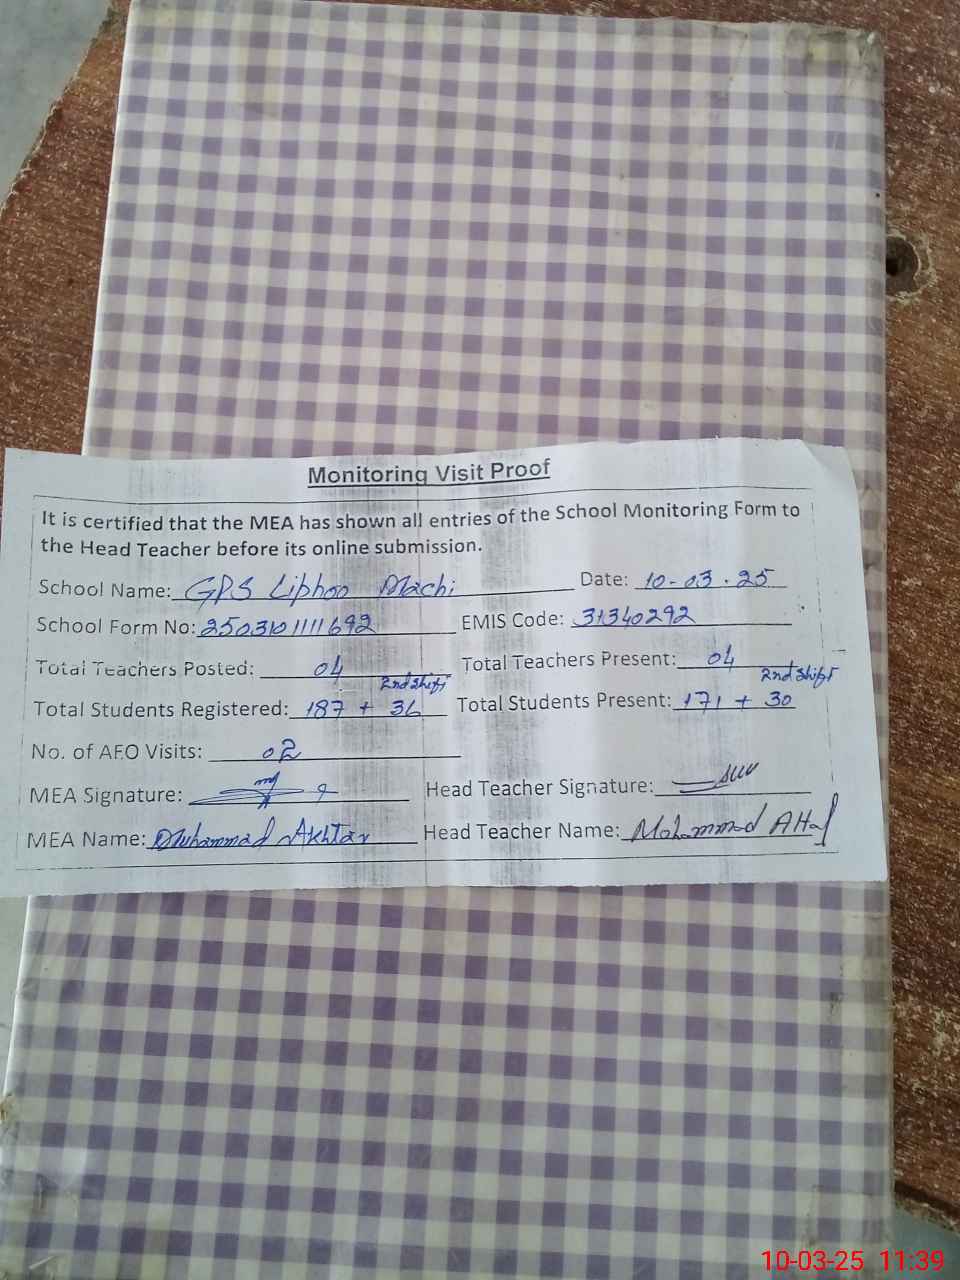 Monitoring Visit Proof
It is certified that the MEA has shown all entries of the School Monitoring Form to
the Head Teacher before its online submission.
School Name: GPS Liphoo Machi Date: 10-03-25
School Form No: 2503101111692 EMIS Code: 31340292
Total Teachers Posted: 04 Total Teachers Present: 04
2nd shift 2nd shift
Total Students Registered: 187 + Total Students Present: 171 + 30
No. of AEO Visits: 02
MEA Signature: Head Teacher Signature:
MEA Name: Muhammad Akhtar Head Teacher Name: Mohammad
10-03-25 11:39